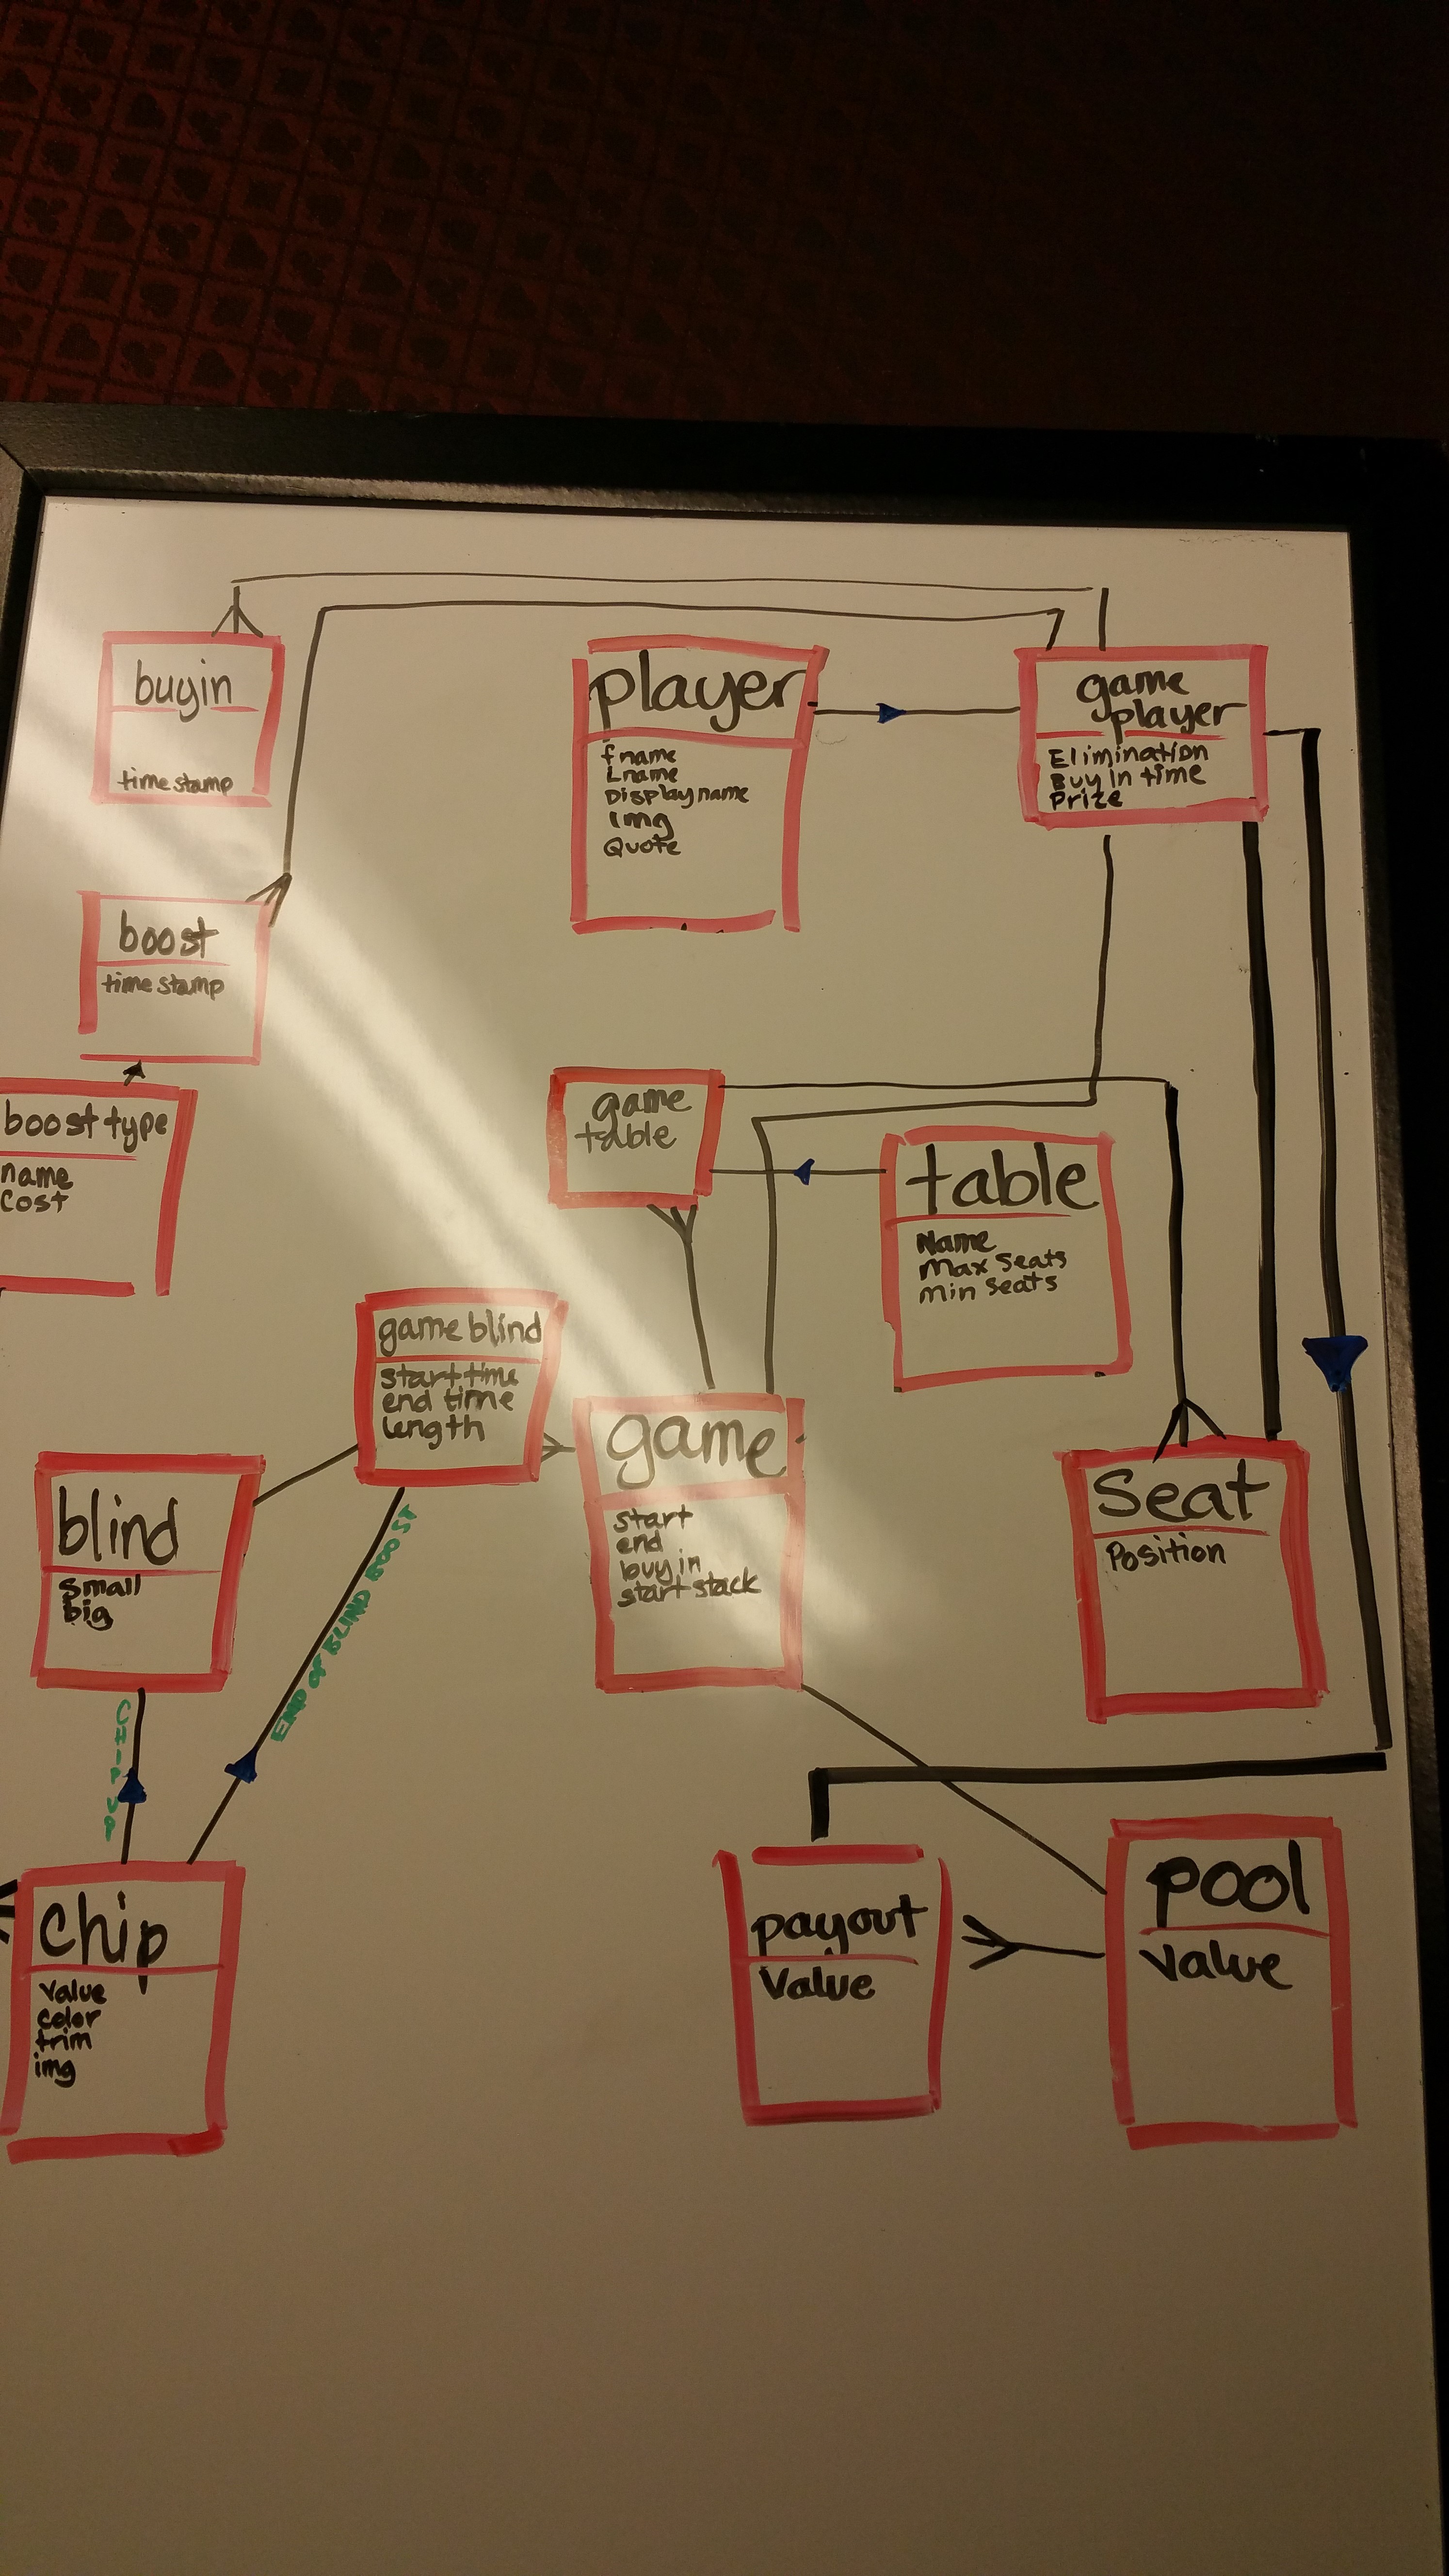 buyin
timestamp
player
fname
Lname
Display name
img
Quote
game
player
Elimination
Buy in time
Prize
boost
timestamp
boost type
name
cost
game
table
table
Name
max seats
min seats
game blind
start time
end time
length
game
start
end
buy in
start stack
Seat
Position
blind
small
big
CHIP UP
END OF BLIND BOOST
chip
value
color
trim
img
payout
Value
pool
Value